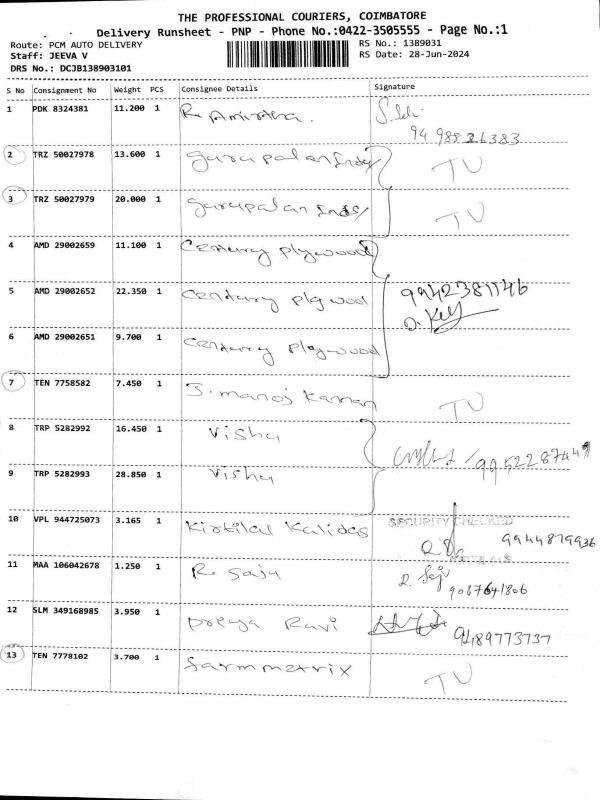 THE PROFESSIONAL COURIERS, COIMBATORE
Delivery Runsheet - PNP - Phone No.:0422-3505555 - Page No.:1
Route: PCM AUTO DELIVERY RS No.: 1389031
Staff: JEEVA V RS Date: 28-Jun-2024
DRS No.: DCJB138903101
S No Consignment No Weight PCS Consignee Details Signature
1 PDK 8324381 11.200 1 R. Amirtha.
2 TRZ 50027978 13.600 1 Gurupalan Inds TV
3 TRZ 50027979 20.000 1 Gurupalan Inds/ TV
4 AMD 29002659 11.100 1 Century plywood
5 AMD 29002652 22.350 1 Century plywood 9942381146
6 AMD 29002651 9.700 1 Century Plywood
7 TEN 7758582 7.450 1 J. manoj kannan TV
8 TRP 5282992 16.450 1 Vishu
9 TRP 5282993 28.850 1 Vishu
10 VPL 944725073 3.165 1 Kirtilal Kalidas SECURITY CHECKED 9944879936
11 MAA 106042678 1.250 1 R. Saju R. Saju
12 SLM 349168985 3.950 1 Preya Ravi 9489773737
13 TEN 7778102 3.700 1 Sarmmetrix TV